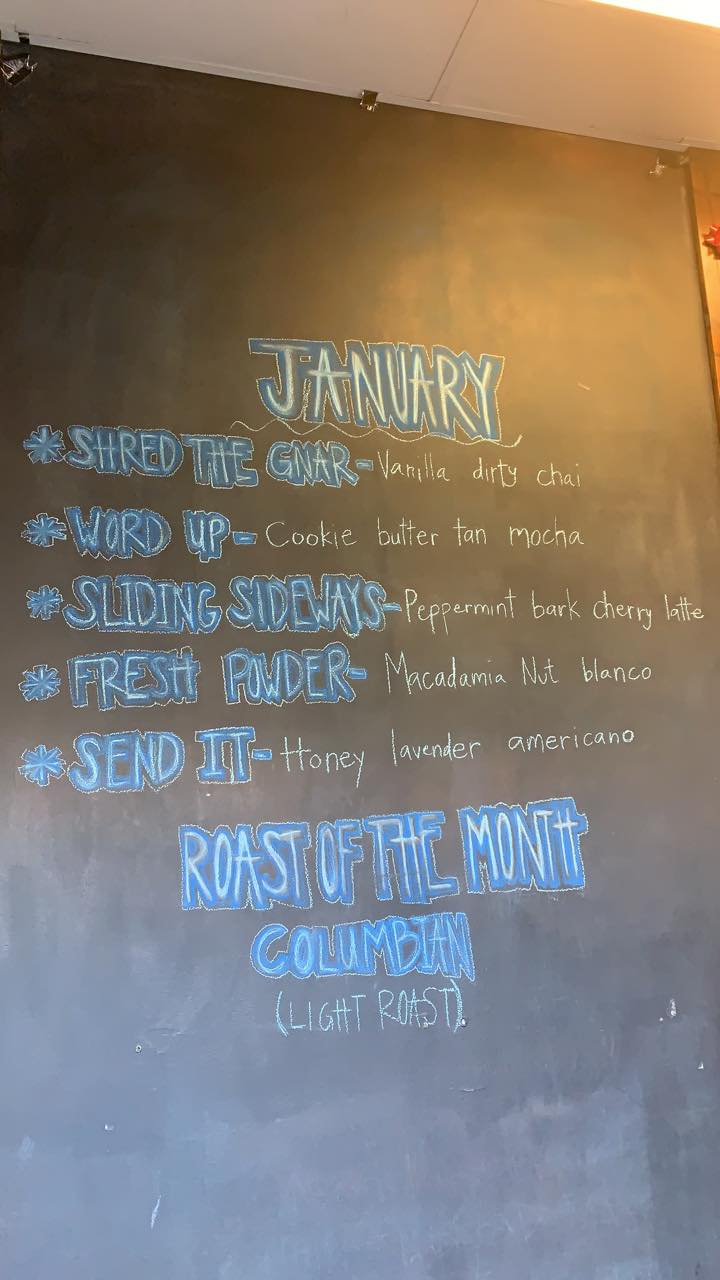 JANUARY
* SHRED THE GNAR - Vanilla dirty chai
* WORD UP - Cookie butter tan mocha
* SLIDING SIDEWAYS - Peppermint bark cherry latte
* FRESH POWDER - Macadamia Nut blanco
* SEND IT - Honey lavender americano
ROAST OF THE MONTH
COLUMBIAN
(LIGHT ROAST)